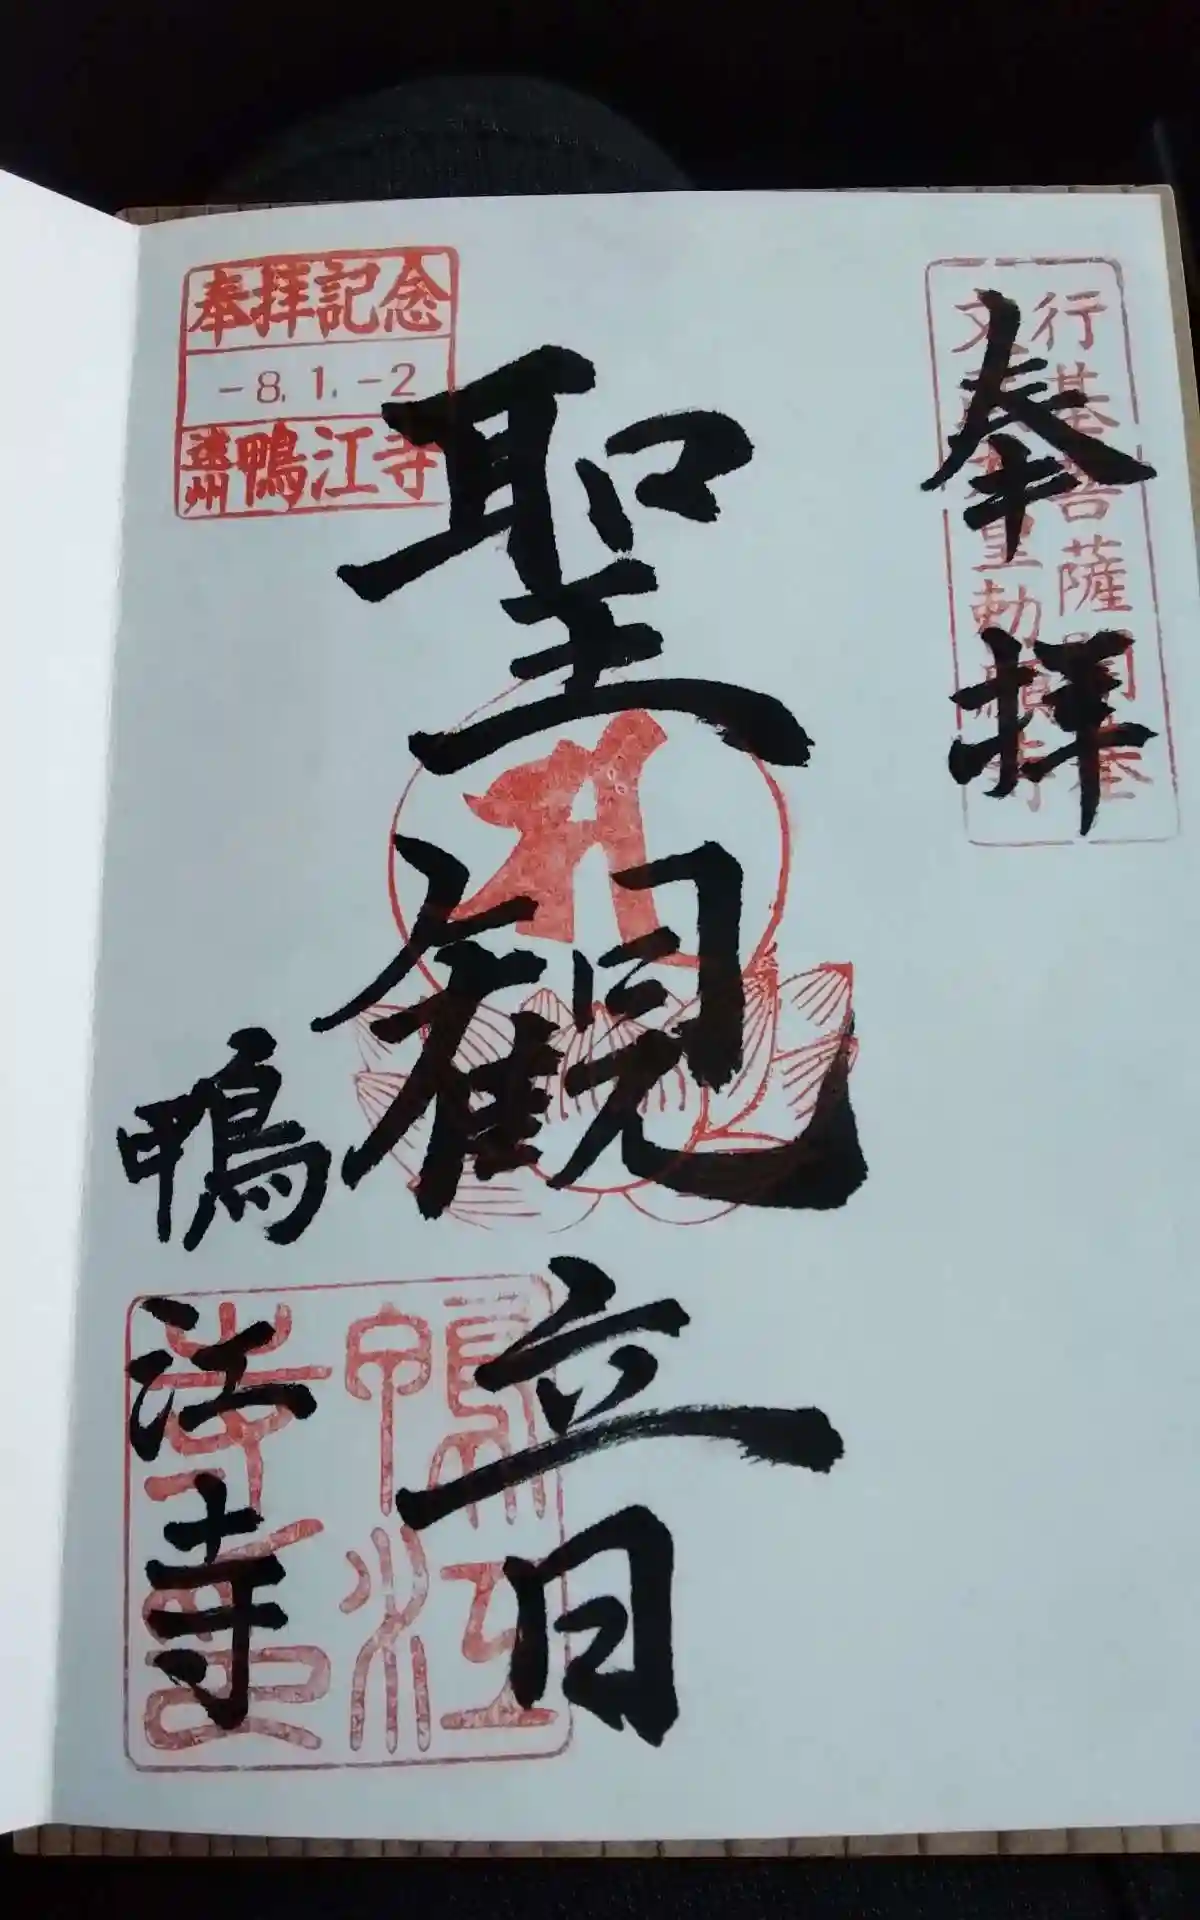 奉拝
行基菩薩開基
文武天皇勅願寺
聖観音
鴨江寺
奉拝記念
-8.1.-2
遠州鴨江寺
鴨江
寺